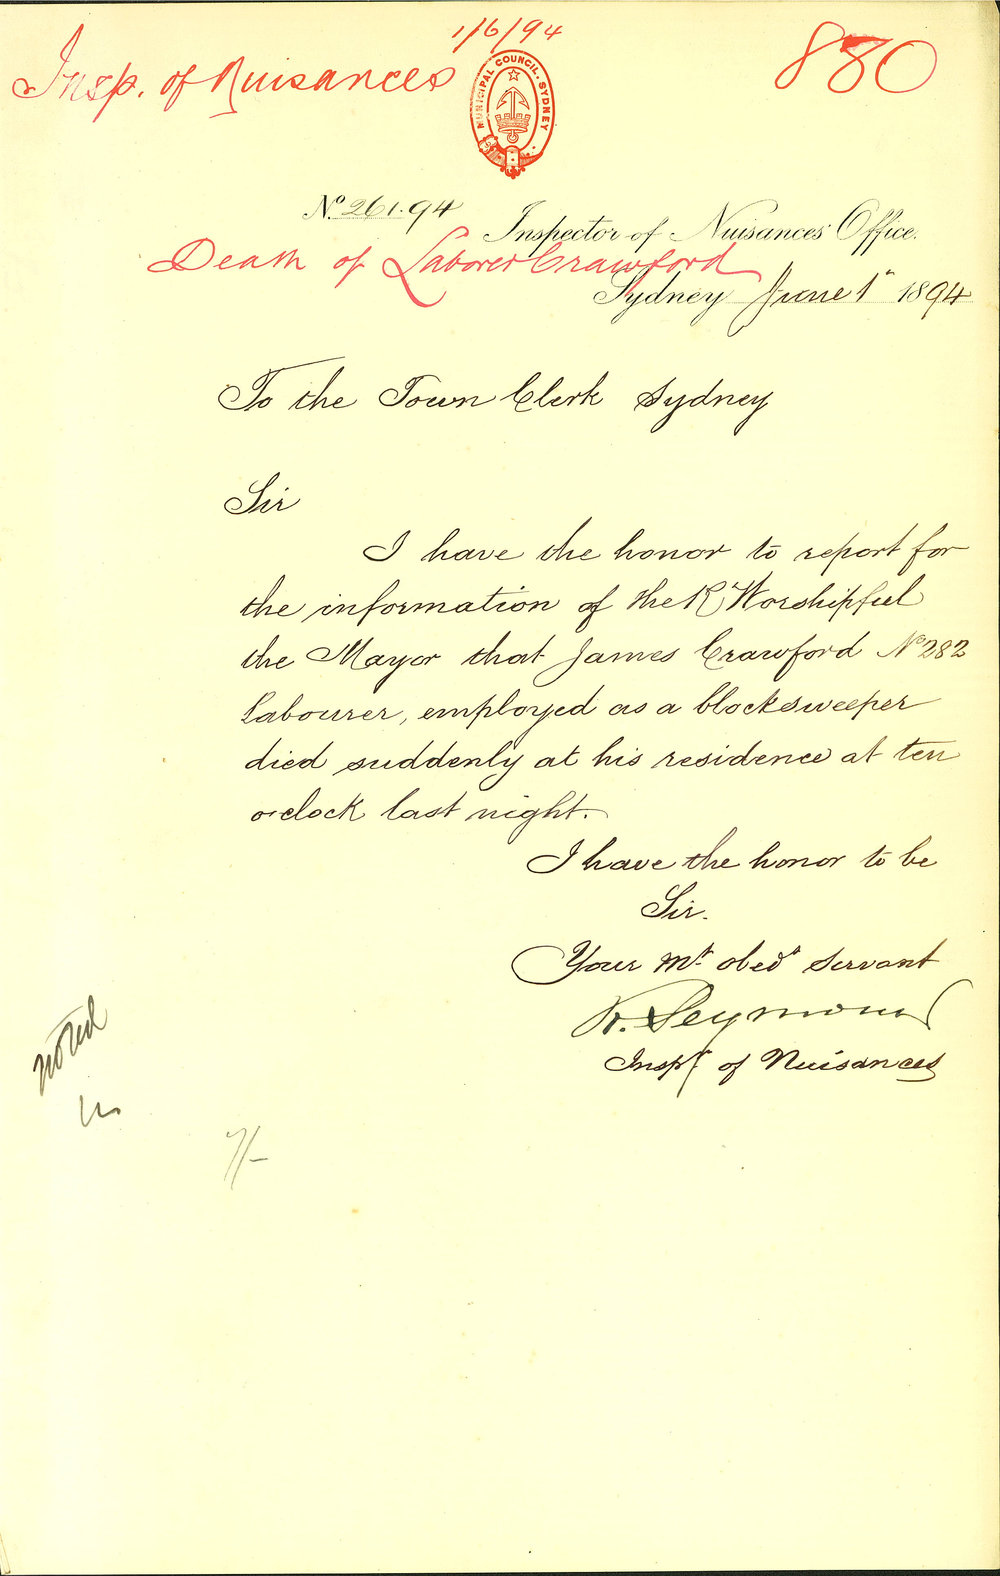 1/6/94
Insp. of Nuisances
880
MUNICIPAL COUNCIL. SYDNEY
No. 261.94
Inspector of Nuisances' Office.
Death of Laborer Crawford
Sydney June 1st 1894
To the Town Clerk Sydney
Sir
I have the honor to report for
the information of the R Worshipful
the Mayor that James Crawford No 282
Labourer, employed as a blocksweeper
died suddenly at his residence at ten
o'clock last night.
I have the honor to be
Sir.
Your Mt. obedt servant
R. Seymour
Inspr of Nuisances
noted